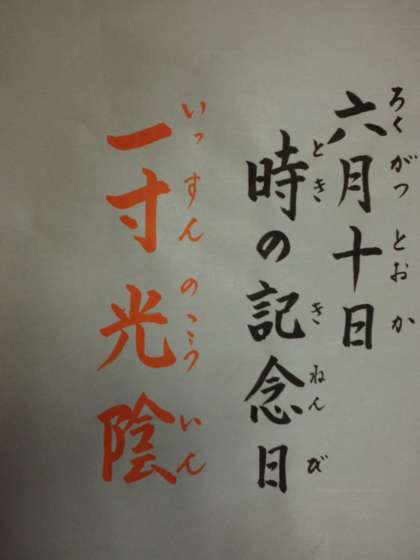 六月十日
ろくがつとおか
時の記念日
ときききねんび
一寸光陰
いっすんのこういん